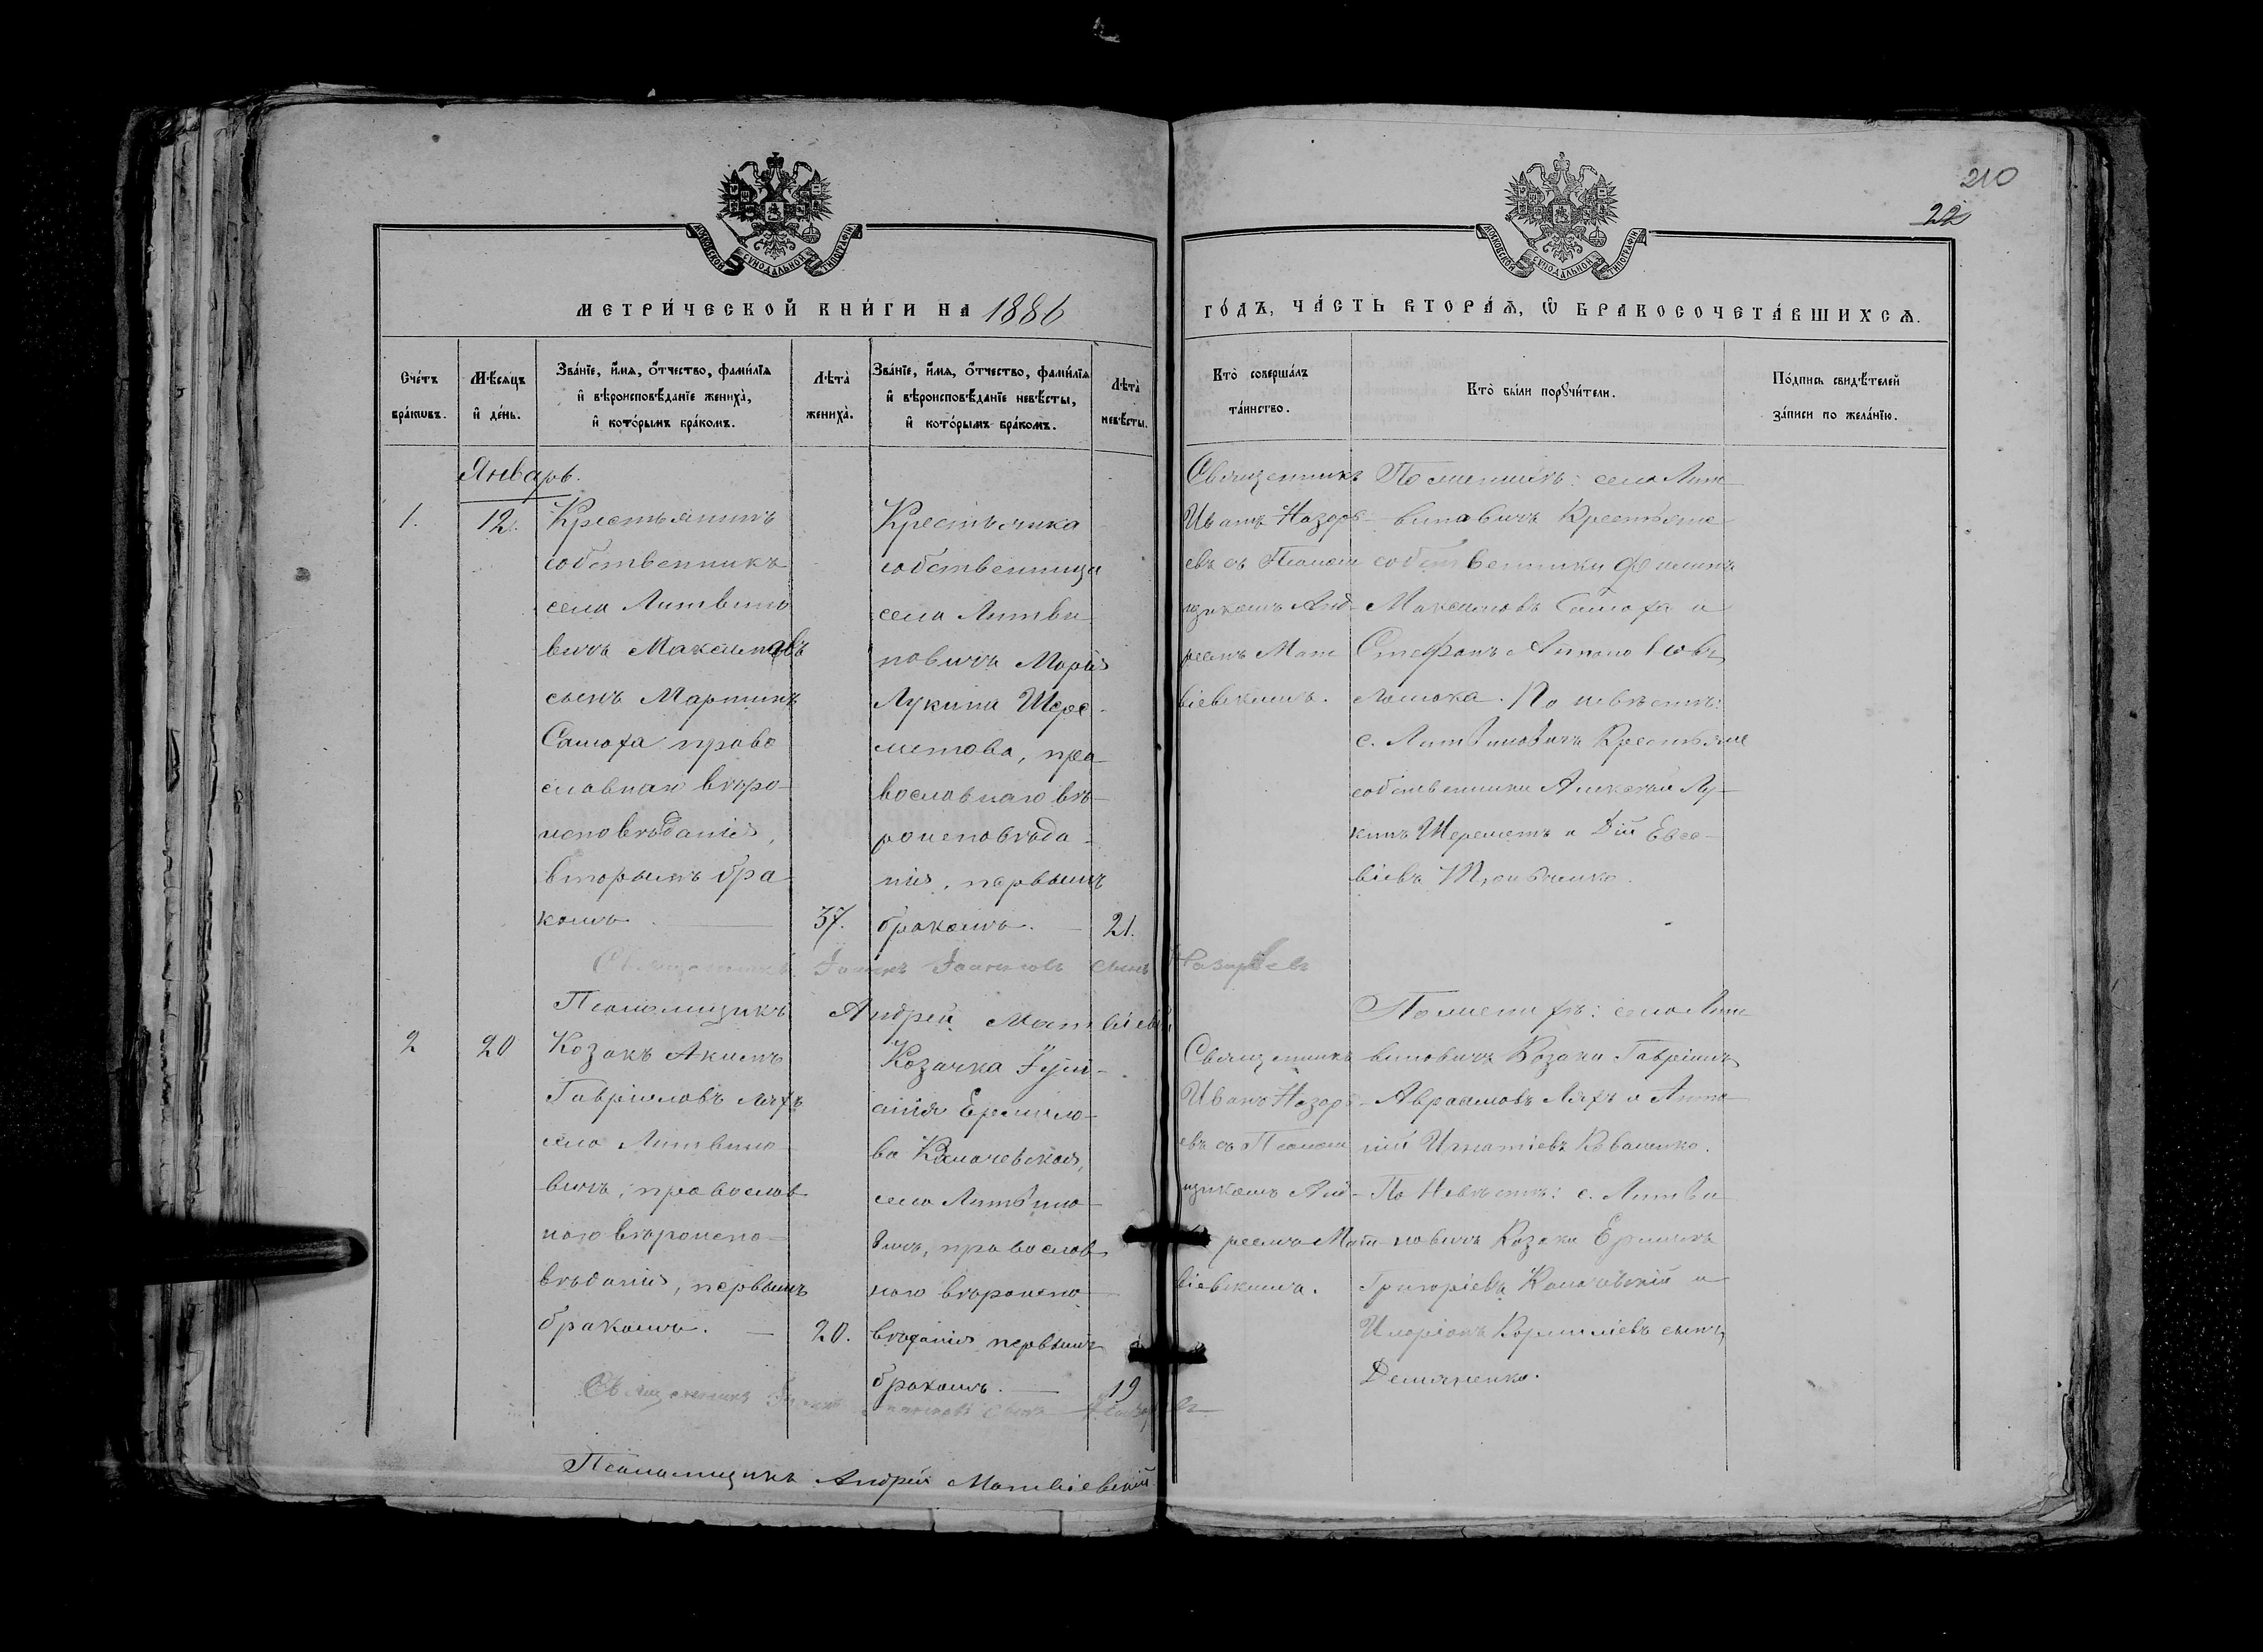 210
22
МОСКОВСКОЙ СѴНОДАЛЬНОЙ ТИПОГРАФІИ
МОСКОВСКОЙ СѴНОДАЛЬНОЙ ТИПОГРАФІИ
МЕТРИ́ЧЕСКОЙ КНИ́ГИ НА 1886
ГО́ДЪ, ЧА́СТЬ ВТОРА́Ѧ, Ѽ БРАКОСОЧЕТА́ВШИХСѦ.
Сче́тъ
бра́ковъ.
Мѣ́сяцъ
и҆ де́нь.
Зва́нїе, и҆́мѧ, ѻ҆́тчество, фами́лїѧ
и҆ вѣроисповѣ́данїе жениха̀,
и҆ кото́рымъ бра́комъ.
Лѣ́та̀
жениха̀.
Зва́нїе, и҆́мѧ, ѻ҆́тчество, фами́лїѧ
и҆ вѣроисповѣ́данїе невѣ́сты,
и҆ кото́рымъ бра́комъ.
Лѣ́та̀
невѣ́сты.
Кто̀ соверша́лъ
та́инство.
Кто̀ бы́ли порꙋчи́тели.
По́дпись свидѣ́телей
за́писи по жела́нїю.
Январь.
1.
12.
Крестьянинъ
собственникъ
села Литвино
вичъ Максимовъ
сынъ Мартинъ
Самоха право
славнаго вѣро-
исповѣданія,
вторымъ бра
комъ
37.
Крестьянка
собственница
села Литви
новичъ Марія
Лукина Шере-
метова, пра
вославнаго вѣ-
роисповѣда-
нія, первымъ
бракомъ.
21.
Священникъ
Иванъ Назарь-
евъ съ Псалом
щикомъ Анд-
реемъ Мат
віевскимъ.
По женихѣ: села Лит
виновичъ Крестьяне
собственники Филипъ
Максимовъ Самоха и
Стефанъ
По невѣстѣ:
с. Литвиновичъ Крестьяне
собственники Алексѣй Лу-
кинъ Шереметъ и Дій Евсе-
віевъ
Священникъ Іоаннъ Іоанновъ сынъ Назарьевъ
Псаломщикъ Андрей Матвіевскій
2
20
Козакъ Акимъ
Гавріиловъ Ляхъ
села Литвино
вичъ, православ
наго вѣроиспо-
вѣданія, первымъ
бракомъ.
20.
Козачка Іули-
анія Ермило-
ва Калачевская,
села Литвино-
вичъ, православ
наго вѣроиспо
вѣданія первымъ
бракомъ.
19
Священникъ
Иванъ Назарь-
евъ съ Псалом
щикомъ Анд-
реемъ Мат
віевскимъ.
По женихѣ: села Лит
виновичъ Козаки Гавріилъ
Авраамовъ Ляхъ и Анто
ній Игнатіевъ Коваленко.
По Невѣстѣ: с. Литви
новичъ Козаки Ермилъ
Григоріевъ Калачевскій и
Иларіонъ Корниліевъ сынъ
Демяненко.
Священникъ Іоаннъ Іоанновъ сынъ Назарьевъ
Псаломщикъ Андрей Матвіевскій